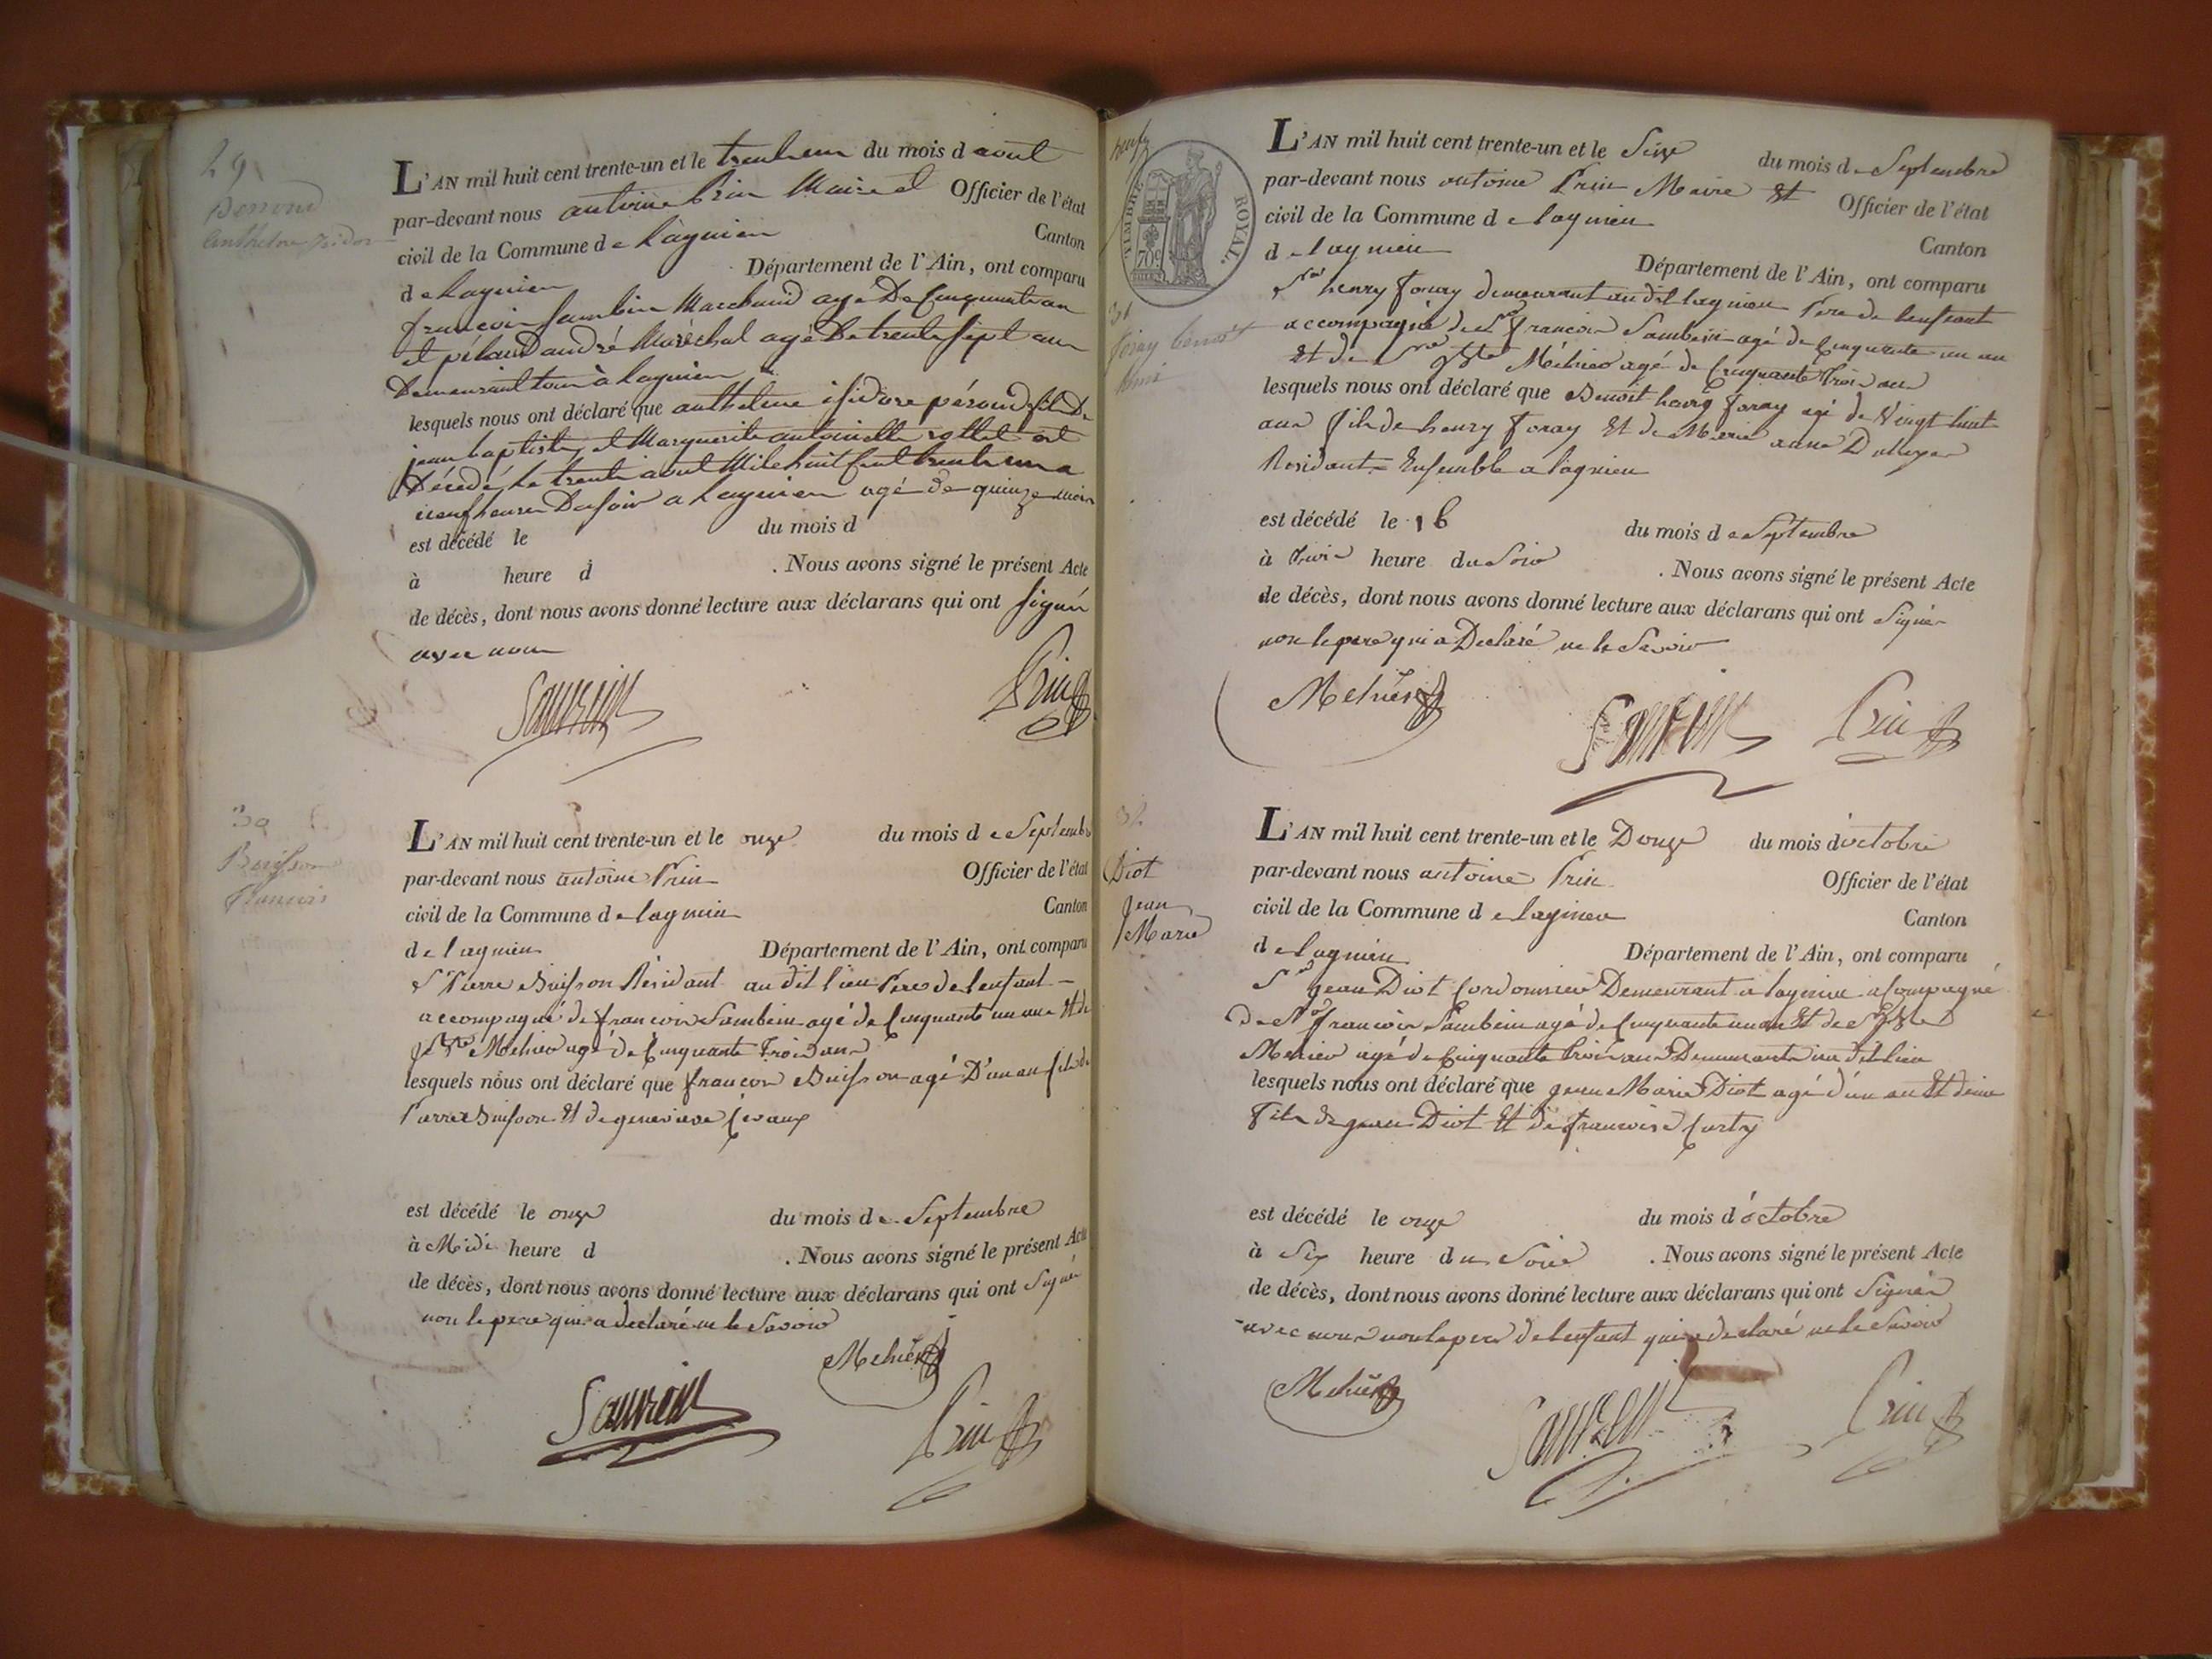 29
Perroud
anthelme isidor
L'AN mil huit cent trente-un et le trenteun du mois d aout
par-devant nous antoine Prin Maire et Officier de l'état
civil de la Commune de Lagnieu Canton
de Lagnieu Département de l'Ain, ont comparu
francois Sambin Marchand agé De Cinquante un an
et pélaud andré Maréchal agé De trente sept ans
Demeurant tous à Lagnieu
lesquels nous ont déclaré que anthelme isidore péroud fils De
jean baptiste et Marguerite antoinette est
Décédé Le trente aout Mile huit Cent trente un a
neuf heures Du soir a Lagnieu agé de quinze mois
est décédé le du mois d
à heure d . Nous avons signé le présent Acte
de décès, dont nous avons donné lecture aux déclarans qui ont signé
avec nous
Prin
30
Buisson
francois
L'AN mil huit cent trente-un et le onze du mois de Septembre
par-devant nous antoine Prin Officier de l'état
civil de la Commune de lagnieu Canton
de lagnieu Département de l'Ain, ont comparu
Sr Pierre Buisson Résidant au dit lieu Père de lenfant
accompagné de francois Sambein agé de Cinquante un ans Et de
Mehier agé de Cinquante Trois ans
lesquels nous ont déclaré que francois Buisson agé D'un an fils de
Pierre Buisson Et de genevieve
est décédé le onze du mois de Septembre
à Midi heure d . Nous avons signé le présent Acte
de décès, dont nous avons donné lecture aux déclarans qui ont Signé
non le pere qui a declaré ne le Savoir
Mehier
Prin
neuf
TIMBRE ROYAL.
70c
31
foray benoit
L'AN mil huit cent trente-un et le Seize du mois de Septembre
par-devant nous antoine Prin Maire Et Officier de l'état
civil de la Commune de lagnieu
de lagnieu Canton
Département de l'Ain, ont comparu
Sr henry foray demeurant au dit lagnieu Pere de lenfant
accompagné de Sr francois Sambein agé de Cinquante un an
Et de Sr Méhier agé de Cinquante Trois ans
lesquels nous ont déclaré que Benoit henry foray agé de Vingt huit
ans fils de henry foray Et de Marie anne
Residant Ensemble a lagnieu
est décédé le 16 du mois de Septembre
à Trois heure du Soir . Nous avons signé le présent Acte
de décès, dont nous avons donné lecture aux déclarans qui ont Signé
non le pere qui a Declaré ne le Savoir
Mehier
Prin
32
Diot
Jean
Marie
L'AN mil huit cent trente-un et le Douze du mois d'octobre
par-devant nous antoine Prin Officier de l'état
civil de la Commune de lagnieu Canton
de lagnieu Département de l'Ain, ont comparu
Sr Jean Diot Cordonnier Demeurant a lagnieu acompagné
De Sr francois Sambein agé de Cinquante un an Et de Sr
Mehier agé de Cinquante trois ans Demeurants au dit lieu
lesquels nous ont déclaré que jean Marie Diot agé d'un an Et demi
fils de jean Diot Et de francoise Curty
est décédé le onze du mois d'octobre
à Six heure du Soir . Nous avons signé le présent Acte
de décès, dont nous avons donné lecture aux déclarans qui ont Signés
avec nous non le pere de lenfant qui a declaré ne le Savoir
Mehier
Prin